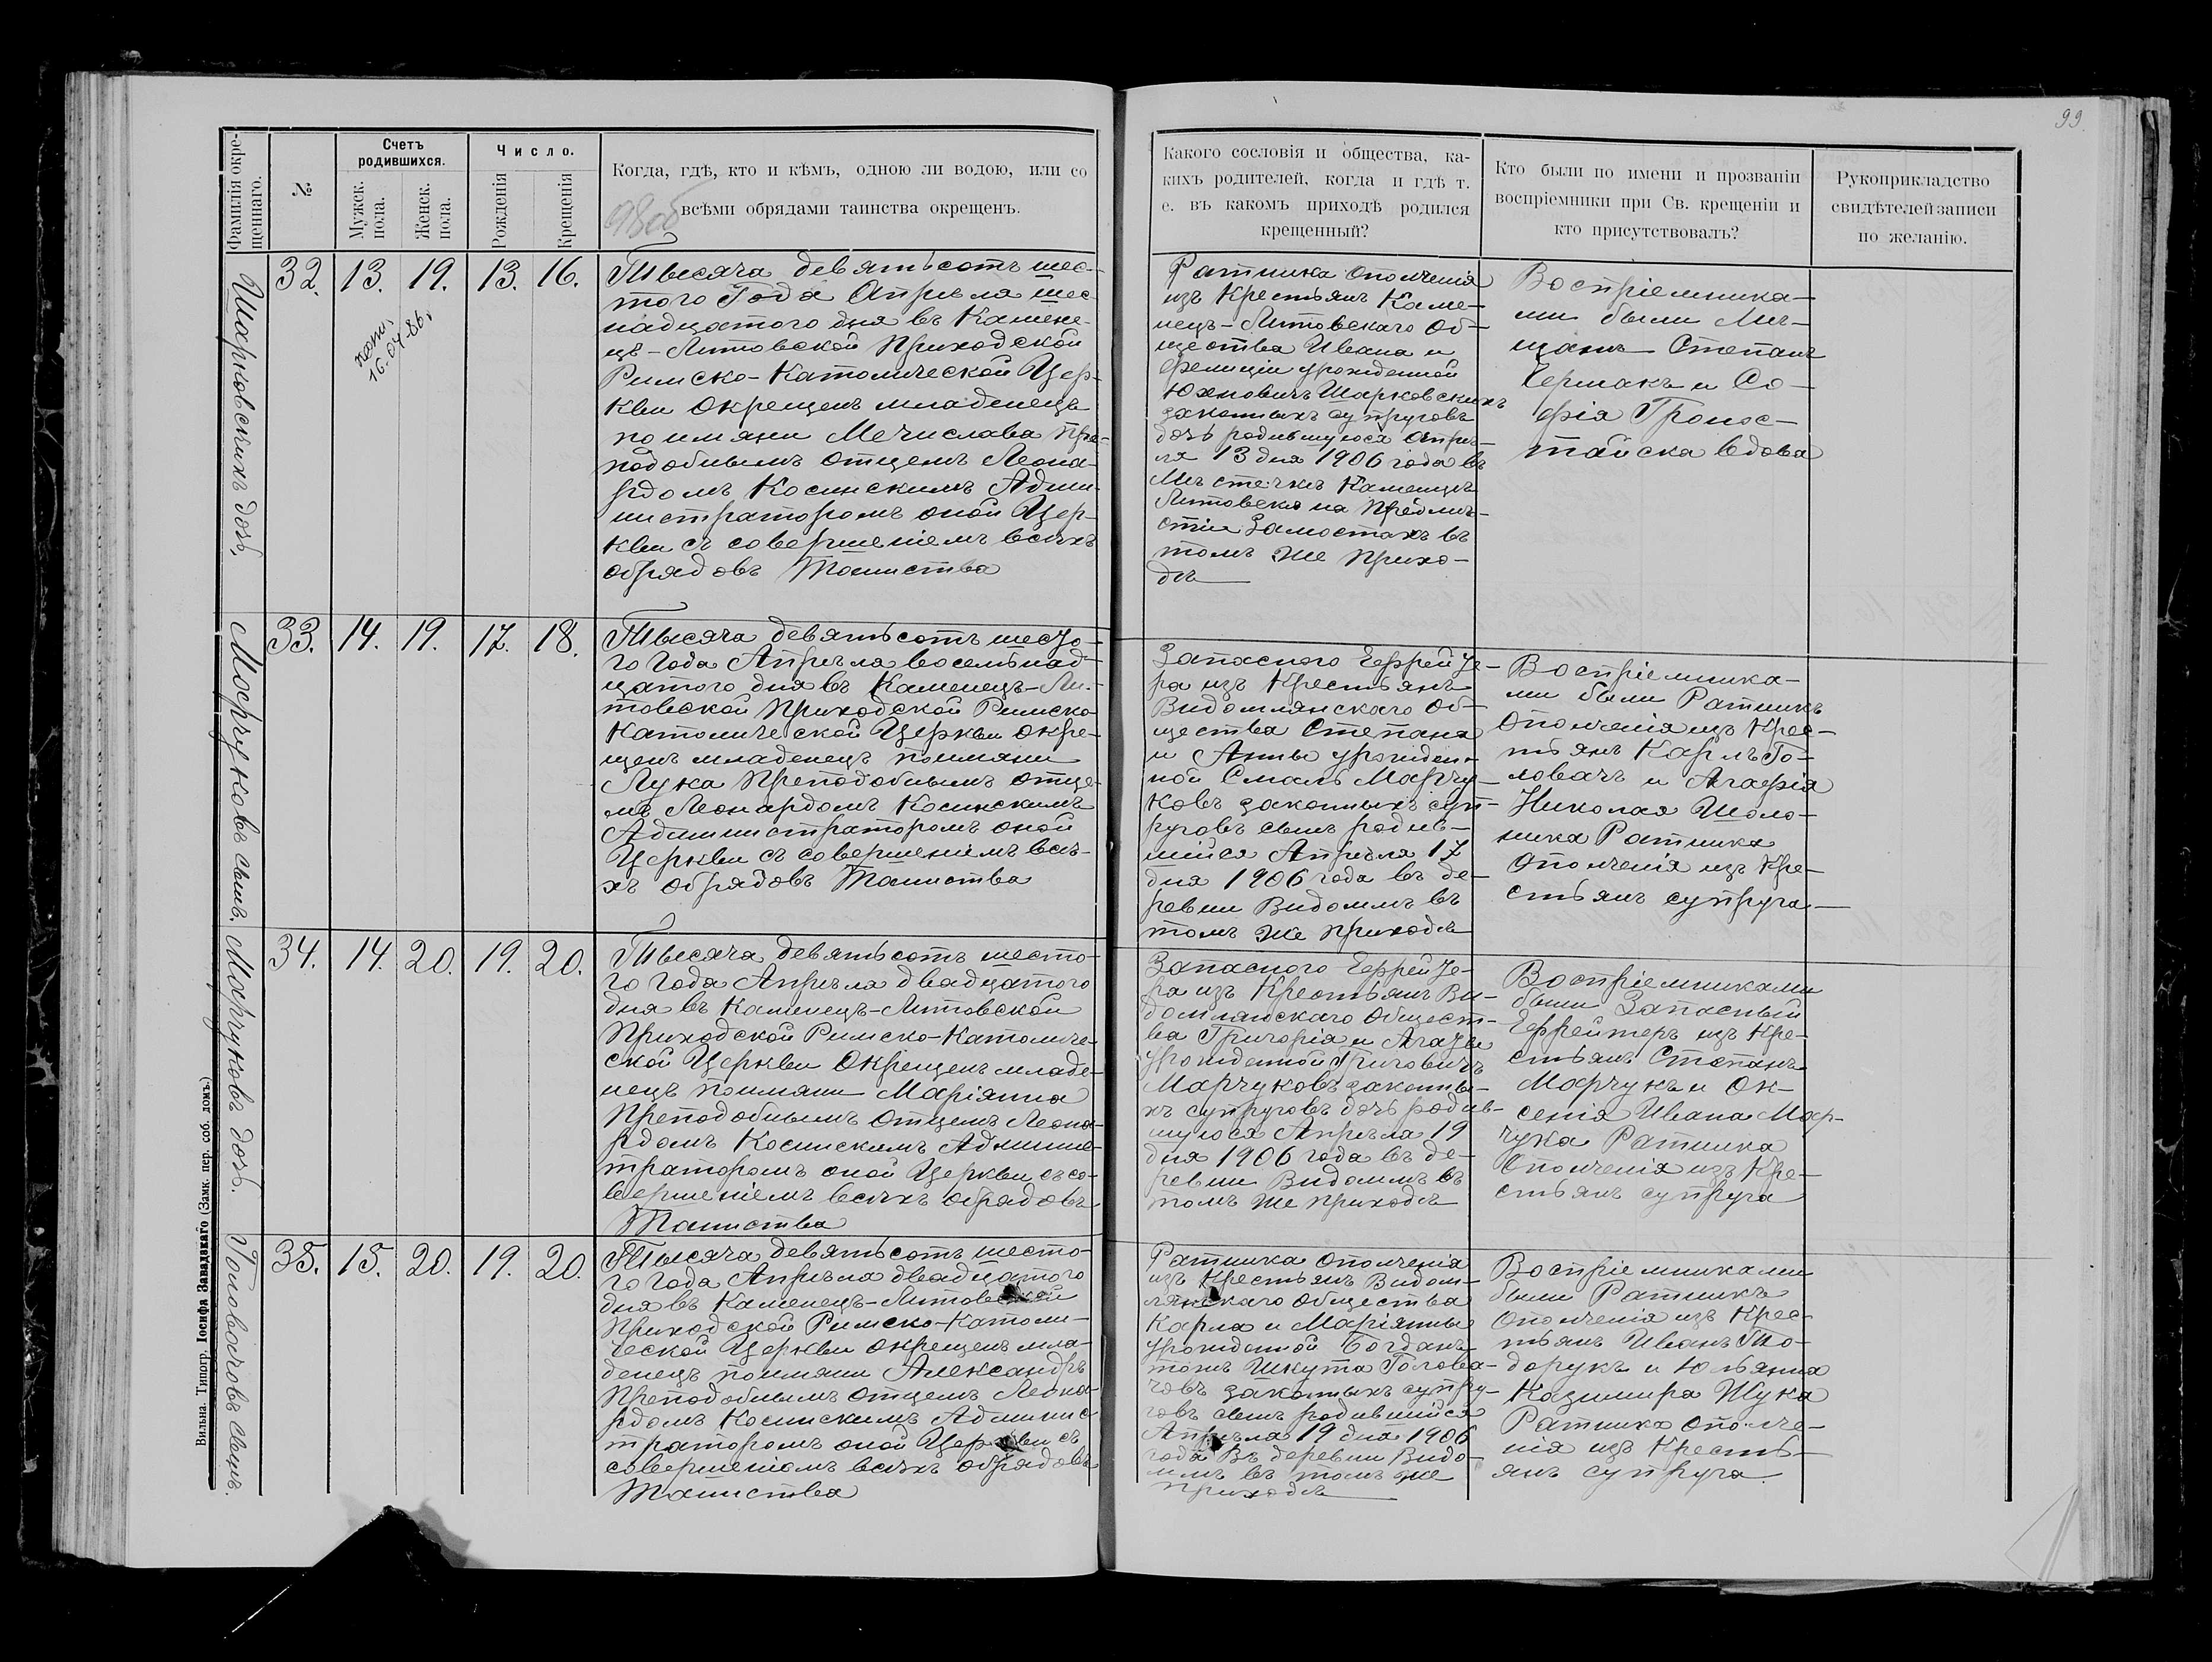 99
Фамилія окре-
щеннаго.
№
Счетъ
родившихся.
Мужек.
пола.
Женск.
пола.
Число.
Рожденія
Крещенія
Когда, гдѣ, кто и кѣмъ, одною ли водою, или со
всѣми обрядами таинства окрещенъ.
98об
Какого сословія и общества, ка-
кихъ родителей, когда и гдѣ т.
е. въ какомъ приходѣ родился
крещенный?
Кто были по имени и прозваніи
воспріемники при Св. крещеніи и
кто присутствовалъ?
Рукоприкладство
свидѣтелей записи
по желанію.
Шарковскихъ дочь,
32. 13. 19. 13. 16.
16.04.86.
Тысяча девятьсотъ шес-
того Года Апрѣля шес-
надцатого дня въ Камене-
цъ-Литовской Приходской
Римско-Католической Цер-
кви Окрещенъ младенецъ
поимяни Мечислава Пре-
подобнымъ отцемъ Леона-
рдомъ Косинскимъ Адми-
нистраторомъ оной Цер-
кви съ совершеніемъ всѣхъ
обрядовъ Таинства
Ратника Ополченія
изъ Крестьянъ Каме-
нецъ-Литовскаго Об-
щества Ивана и
Фелиціи урожденной
Юхновичъ Шарковскихъ
законныхъ супруговъ
дочь родившуюся Апрѣ-
ля 13 дня 1906 года въ
Мѣстечкѣ Каменцѣ
Литовскѣ на Предмѣ-
стіи Замостахъ въ
томъ же Прихо-
дѣ
Воспріемника-
ми были Мѣ-
щанъ Степанъ
Чермакъ и Со-
фія Гронос-
тайска вдова
Марчуковъ сынъ.
33. 14. 19. 17. 18.
Тысяча девятьсотъ шесто-
го Года Апрѣля восемьнад-
цатого дня въ Каменецъ-Ли-
товской Приходской Римско
Католической Церкви окре-
щенъ младенецъ поимяни
Лука Преподобнымъ отце-
мъ Леонардомъ Косинскимъ
Администраторомъ оной
Церкви съ совершеніемъ всѣ-
хъ обрядовъ Таинства
Запасного Ефрейте-
ра изъ Крестьянъ
Видомлянскаго Об-
щества Степана
и Анны урожден-
ной Смаль Марчу-
ковъ законныхъ суп-
руговъ сынъ родив-
шійся Апрѣля 17
дня 1906 года въ де-
ревни Видомлѣ въ
томъ же приходѣ
Воспріемника-
ми были Ратникъ
Ополченія изъ Крес-
тьянъ Карлъ Го-
ловачъ и Агафія
Николая Шоло-
ника Ратника
Ополченія изъ Кре-
стьянъ супруга
Марчуковъ дочь.
34. 14. 20. 19. 20.
Тысяча девятьсотъ шесто-
го Года Апрѣля двадцатого
дня въ Каменецъ-Литовской
Приходской Римско-Католиче-
ской Церкви Окрещенъ младе-
нецъ поимяни Маріянна
Преподобнымъ Отцемъ Леона-
рдомъ Косинскимъ Админис-
траторомъ оной Церкви съ со-
вершеніемъ всѣхъ обрядовъ
Таинства
Запасного Ефрейте-
ра изъ Крестьянъ Ви-
домлянскаго Общест-
ва Григорія и Агаты
урожденной Григовичъ
Марчуковъ законны-
хъ супруговъ дочь родив-
шуюся Апрѣля 19
дня 1906 года въ де-
ревни Видомлѣ въ
томъ же приходѣ
Воспріемниками
были Запасный
Ефрейторъ изъ Кре-
стьянъ Степанъ
Марчукъ и Ок-
сенія Ивана Мар-
чука Ратника
Ополченія изъ Кре-
стьянъ супруга
Головачовъ сынъ.
35. 15. 20. 19. 20.
Тысяча девятьсотъ шесто-
го Года Апрѣля двадцатого
дня въ Каменецъ-Литовской
Приходской Римско-Католи-
ческой Церкви окрещенъ мла-
денецъ поимяни Александръ
Преподобнымъ Отцемъ Леона-
рдомъ Косинскимъ Админис-
траторомъ оной Церкви съ
совершеніемъ всѣхъ обрядовъ
Таинства
Ратника Ополченія
изъ Крестьянъ Видом-
лянскаго Общества
Карла и Маріянны
урожденной Богданъ
тожъ Шкута Голова-
човъ законныхъ супру-
говъ сынъ родившійся
Апрѣля 19 дня 1906
года въ деревни Видо-
млѣ въ томъ же
приходѣ
Воспріемниками
были Ратникъ
Ополченія изъ Крес-
тьянъ Иванъ Тхо-
дорукъ и Юльянна
Казимира Жука
Ратника Ополче-
нія изъ Кресть-
янъ супруга
Вильна. Типогр. Іосифа Завадзкаго (Замк. пер. соб. домъ.)